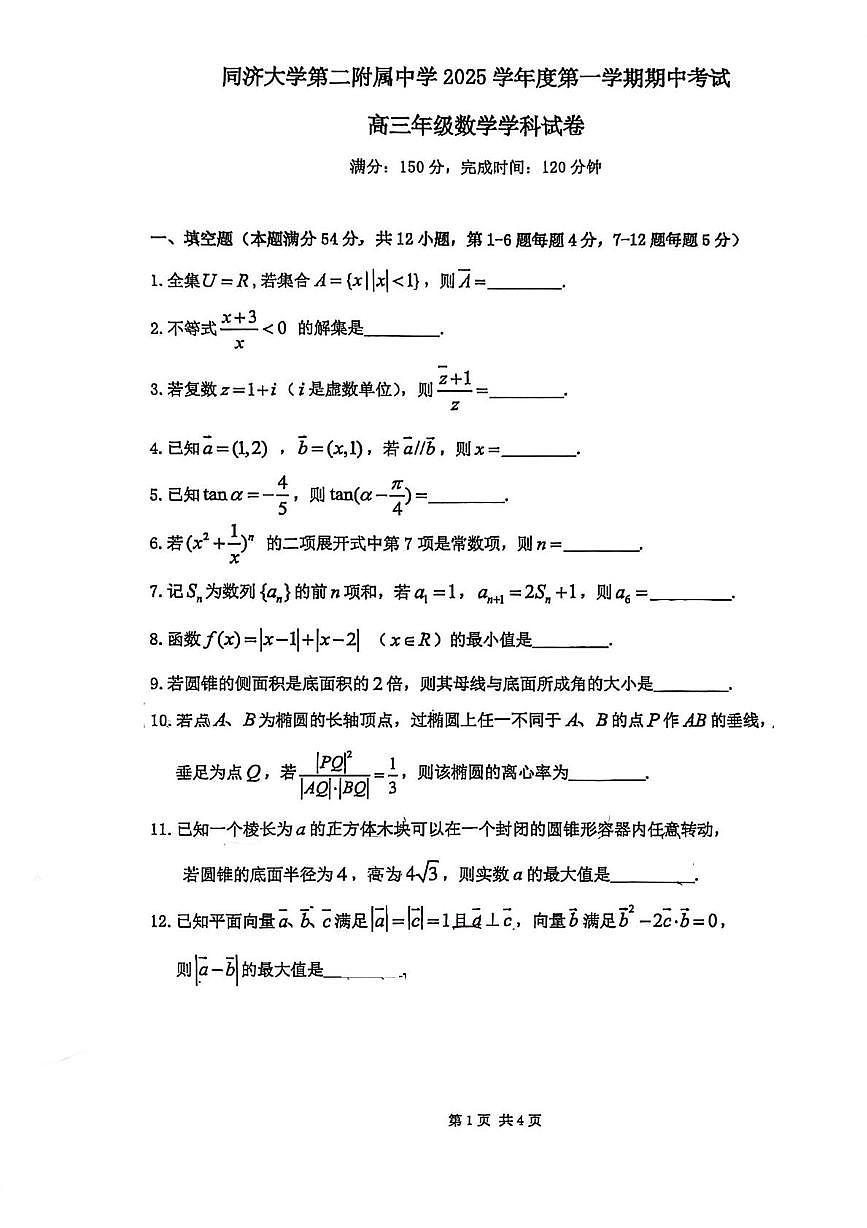 同济大学第二附属中学 2025 学年度第一学期期中考试
高三年级数学学科试卷
满分：150 分，完成时间：120 分钟
一、填空题（本题满分 54 分，共 12 小题，第 1-6 题每题 4 分，7-12 题每题 5 分）
1. 全集 $U=R$, 若集合 $A=\{x||x|<1\}$，则 $\overline{A}=$________.
2. 不等式 $\frac{x+3}{x}<0$ 的解集是________.
3. 若复数 $z=1+i$（$i$ 是虚数单位），则 $\frac{\overline{z}+1}{z}=$________.
4. 已知 $\vec{a}=(1,2)$ ，$\vec{b}=(x,1)$，若 $\vec{a}//\vec{b}$，则 $x=$________.
5. 已知 $\tan\alpha=-\frac{4}{5}$，则 $\tan(\alpha-\frac{\pi}{4})=$________.
6. 若 $(x^2+\frac{1}{x})^n$ 的二项展开式中第 7 项是常数项，则 $n=$________.
7. 记 $S_n$ 为数列 $\{a_n\}$ 的前 $n$ 项和，若 $a_1=1$，$a_{n+1}=2S_n+1$，则 $a_6=$________.
8. 函数 $f(x)=|x-1|+|x-2|$ （$x\in R$）的最小值是________.
9. 若圆锥的侧面积是底面积的 2 倍，则其母线与底面所成角的大小是________.
10. 若点 A、B 为椭圆的长轴顶点，过椭圆上任一不同于 A、B 的点 P 作 AB 的垂线，
垂足为点 Q，若 $\frac{|PQ|^2}{|AQ|\cdot|BQ|}=\frac{1}{3}$，则该椭圆的离心率为________.
11. 已知一个棱长为 $a$ 的正方体木块可以在一个封闭的圆锥形容器内任意转动，
若圆锥的底面半径为 4，高为 $4\sqrt{3}$，则实数 $a$ 的最大值是________.
12. 已知平面向量 $\vec{a}$、$\vec{b}$、$\vec{c}$ 满足 $|\vec{a}|=|\vec{c}|=1$ 且 $\vec{a}\perp\vec{c}$，向量 $\vec{b}$ 满足 $\vec{b}^2-2\vec{c}\cdot\vec{b}=0$，
则 $|\vec{a}-\vec{b}|$ 的最大值是________.
第 1 页 共 4 页